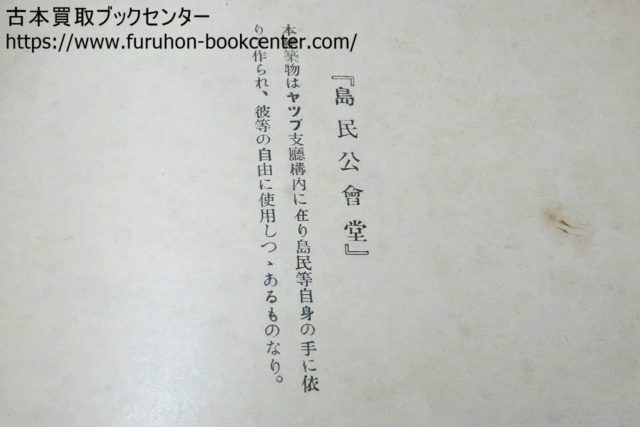 古本買取ブックセンター
https://www.furuhon-bookcenter.com/
『島民公會堂』
本建築物はヤツプ支廳構内に在り島民等自身の手に依
り作られ、彼等の自由に使用しつゝあるものなり。